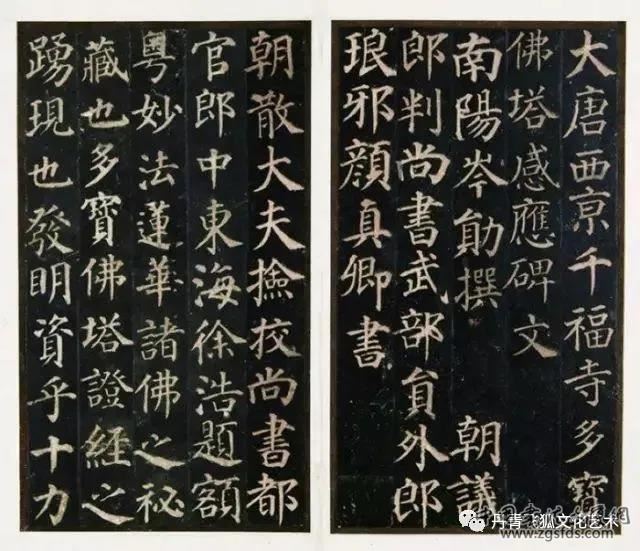 大唐西京千福寺多寶
佛塔感應碑文
南陽岑勛撰 朝議
郎判尚書武部員外郎
琅邪顏真卿書
朝散大夫撿校尚書都
官郎中東海徐浩題額
粵妙法蓮華諸佛之秘
藏也多寶佛塔證經之
踴現也發明資乎十力
丹青飞狐文化艺术
www.zgsfds.com